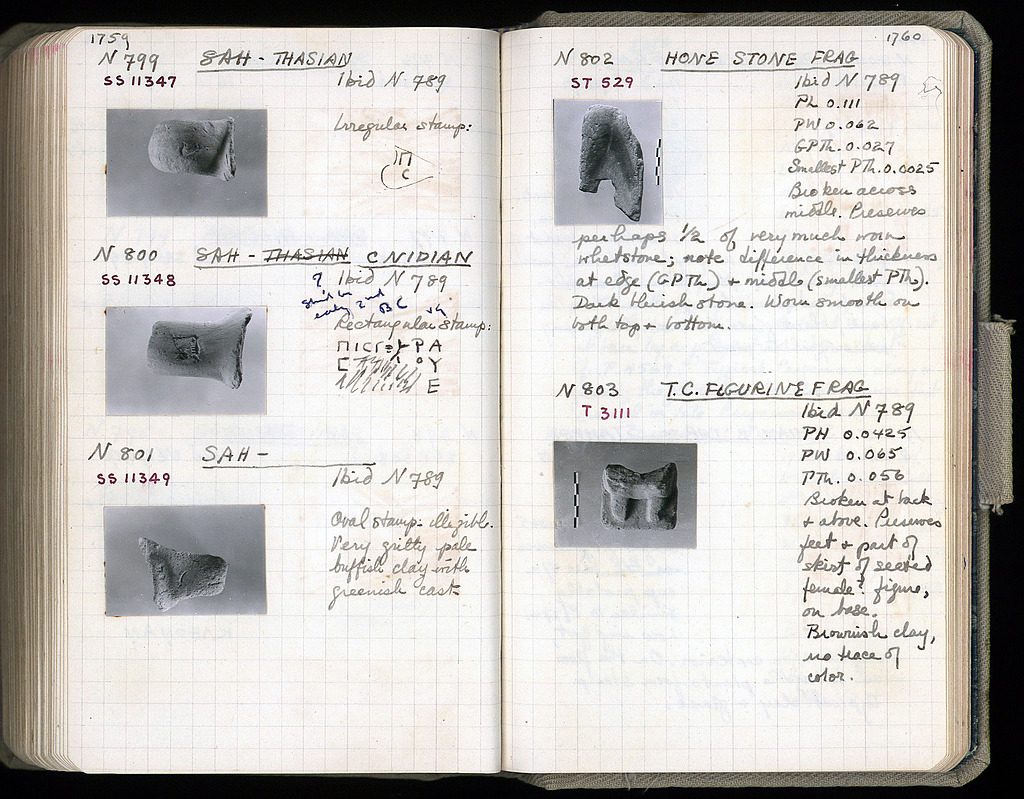 1759
N 799 SAH - THASIAN
SS 11347
Ibid N 789
Irregular stamp:
Π
C
N 800 SAH - THASIAN CNIDIAN
SS 11348
? Ibid N 789
early 2nd BC VG
Rectangular stamp:
ΡΑ
ΟΥ
Ε
N 801 SAH -
SS 11349
Ibid N 789
Oval stamp: illegible.
Very gritty pale
buffish clay with
greenish cast
1760
N 802 HONE STONE FRAG
ST 529
Ibid N 789
PL 0.111
PW 0.062
GPTh. 0.027
Smallest PTh. 0.0025
Broken across
middle. Preserves
perhaps 1/2 of very much worn
whetstone; note difference in thickness
at edge (GPTh) + middle (smallest PTh).
Dark bluish stone. Worn smooth on
both top + bottom.
N 803 T.C. FIGURINE FRAG
T 3111
Ibid N 789
PH 0.0425
PW 0.065
PTh. 0.056
Broken at back
+ above. Preserves
feet + part of
skirt of seated
female? figure,
on base.
Brownish clay,
no trace of
color.